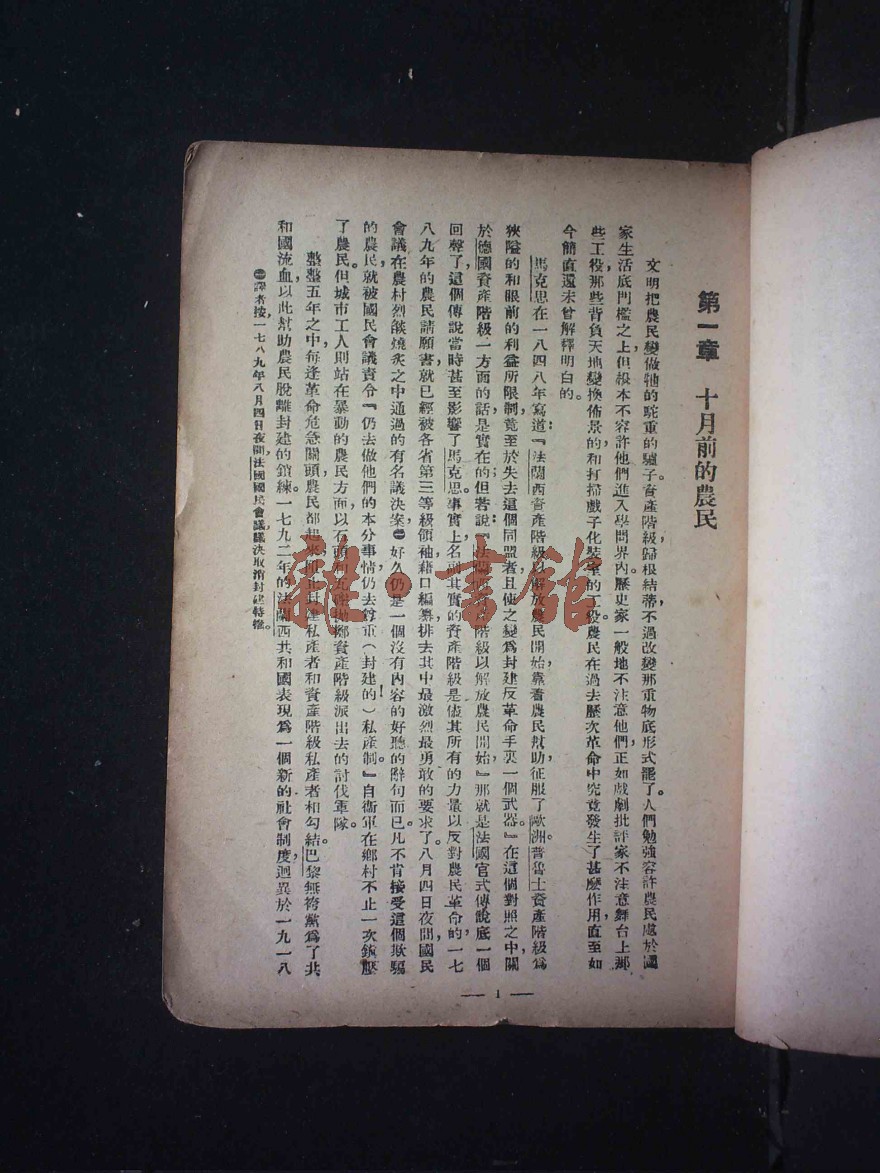 第一章　十月前的農民
文明把農民變做牠的駝重的驢子。資產階級歸根結蒂不過改變那重物底形式罷了。人們勉強容許農民處於國
家生活底門檻之上，但根本不容許他們進入學問界內。歷史家一般地不注意他們，正如戲劇批評家不注意舞台上那
些工役，那些背負天地變換佈景的和打掃戲子化裝室的工役。農民在過去歷次革命中究竟發生了甚麼作用，直至如
今簡直還未曾解釋明白的。
馬克思在一八四八年寫道：『法蘭西資產階級以解放農民開始，靠着農民幫助征服了歐洲。普魯士資產階級爲
狹隘的和眼前的利益所限制，竟至於失去這個同盟者，且使之變爲封建反革命手裏一個武器。』在這個對照之中，關
於德國資產階級一方面的話，是實在的；但若說：『法蘭西資產階級以解放農民開始』那就是法國官式傳說底一個
回聲了，這個傳說當時甚至影響了馬克思。事實上，名副其實的資產階級是儘其所有的力量以反對農民革命的。一七
八九年的農民請願書，就已經被各省第三等級領袖藉口編纂，排去其中最激烈最勇敢的要求了。八月四日夜間國民
會議在農村烈燄燒炙之中通過的有名議決案㊀好久仍是一個沒有內容的好聽的辭句而已。凡不肯接受這個欺騙
的農民，就被國民會議責令『仍去做他們的本分事情，仍去尊重（封建的！）私產制。』自衛軍在鄉村不止一次鎮壓
了農民。但城市工人則站在暴動的農民方面，以石頭和瓦礫拋擲資產階級派出去的討伐軍隊。
整整五年之中，每逢革命危急關頭，農民都起來阻止封建私產者和資產階級私產者相勾結。巴黎無袴黨爲了共
和國流血，以此幫助農民脫離封建的鎖練。一七九二年的法蘭西共和國表現爲一個新的社會制度，迴異於一九一八
㊀譯者按，一七八九年八月四日夜間，法國國民會議議決取消封建特權。
— 1 —
雜·書館